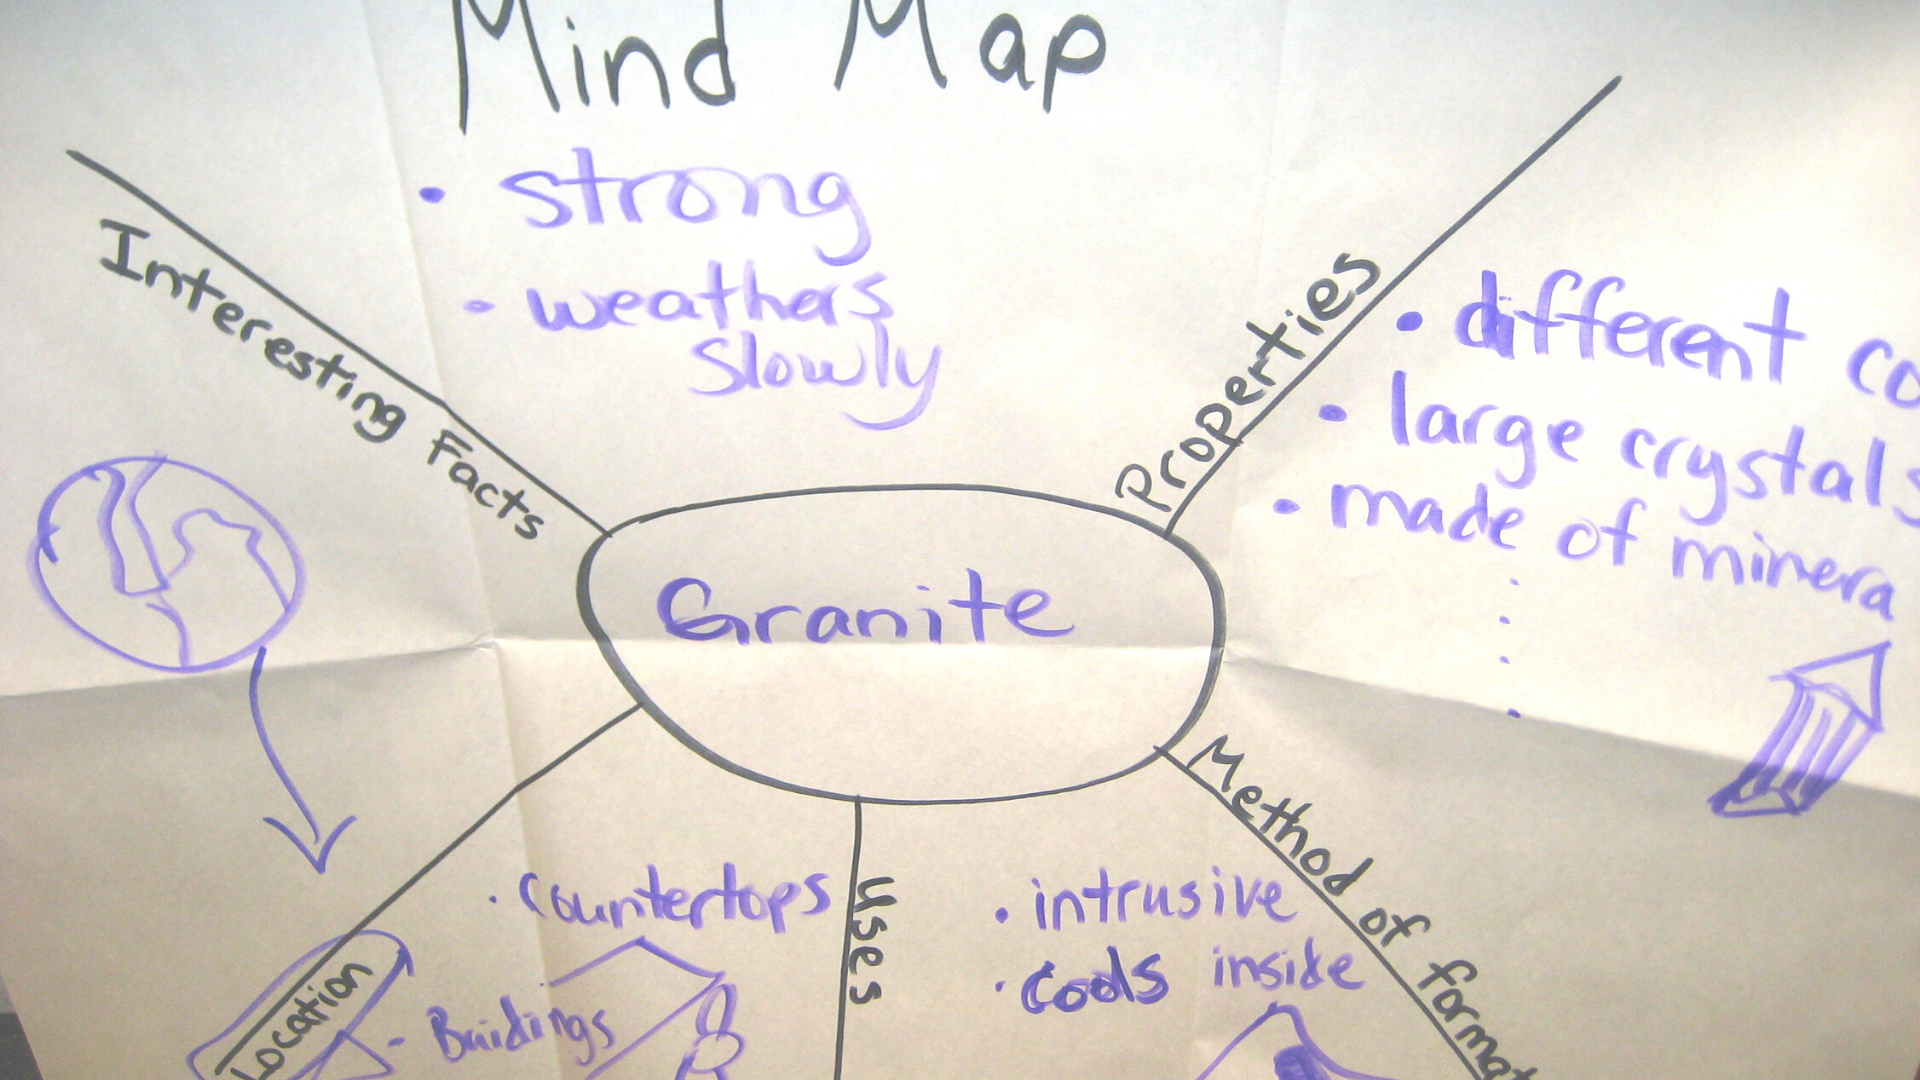 Mind Map
• strong
• weathers
slowly
Interesting Facts
Properties
• different co
• large crystals
• made of minera
Granite
Method of format
• intrusive
• cools inside
Uses
• countertops
- Buidings
Location